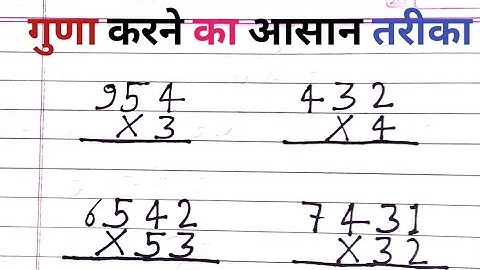 गुणा करने का आसान तरीका
954
X 3
432
X 4
6542
X 53
7431
X 32